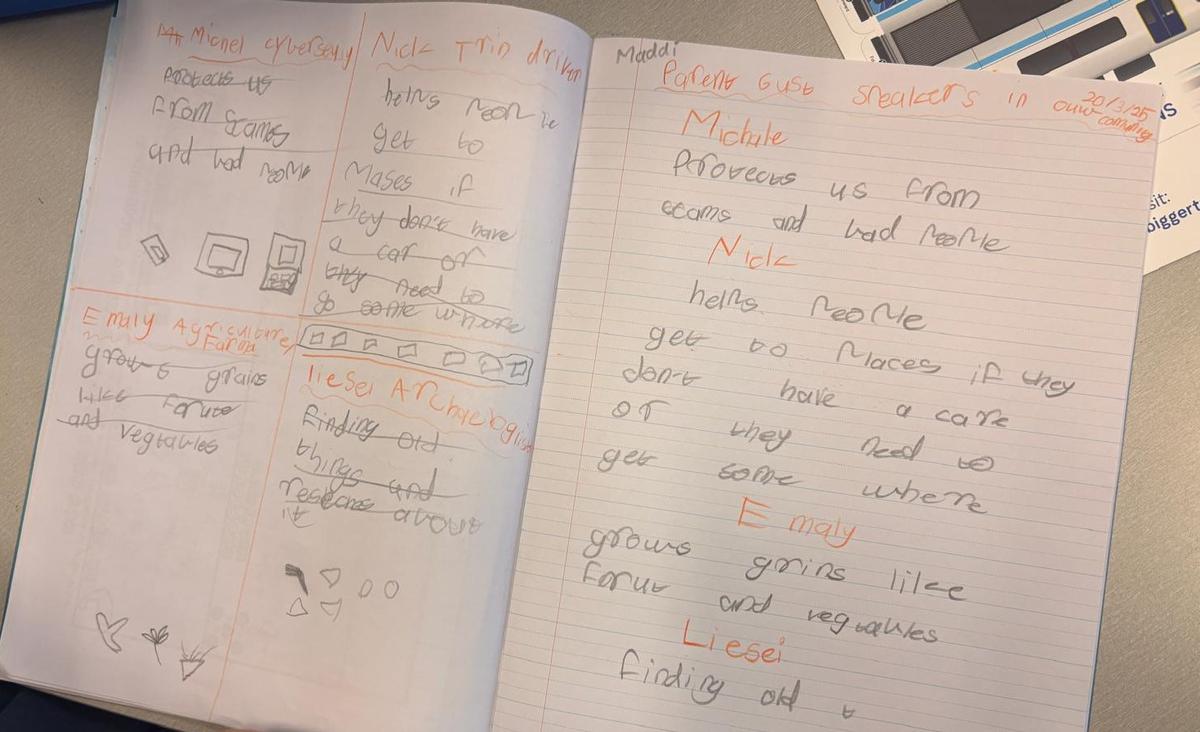 Michel cybersenty
Protects us
from scams
and bad people
Nick Trin driver
helps people
get to
Plases if
they don't have
a car or
they need to
go some where
Emaly Agriculture
Farma
grows grains
like forute
and vegtables
liesei Archaeologist
finding old
things and
about
it
Maddi
Parent Gust speakers in ouw
20/3/25
Michale
Protects us from
scams and bad people
Nick
helps people
get to places if they
don't have a care
or they need to
get some where
Emaly
grows grins like
forut and vegtables
Liesei
finding old t
NS
sit:
biggert